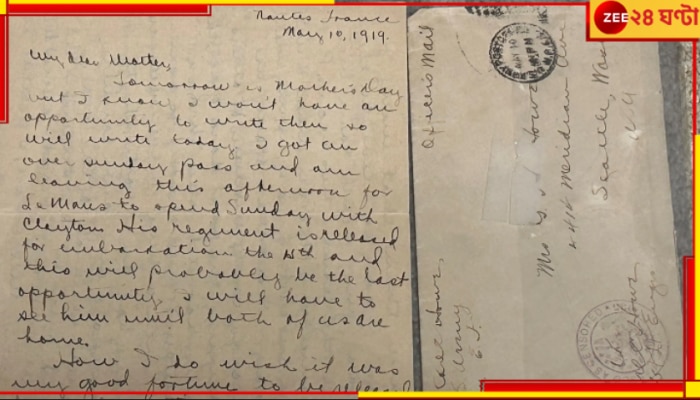 ZEE ২৪ ঘণ্টা
Nantes France
May 10, 1919.
My dear Mother,
Tomorrow is Mothers Day
but I know I won't have an
opportunity to write then so
will write today. I got an
over Sunday pass and am
leaving this afternoon for
Le Mans to spend Sunday with
Clayton. His regiment is released
for embarkation the 15th and
this will probably be the last
opportunity I will have to
see him until both of us are
home.
Now I do wish it was
my good fortune to be released
Officer's Mail
Mrs
2414 Meridian Ave
Seattle, Wash
Army